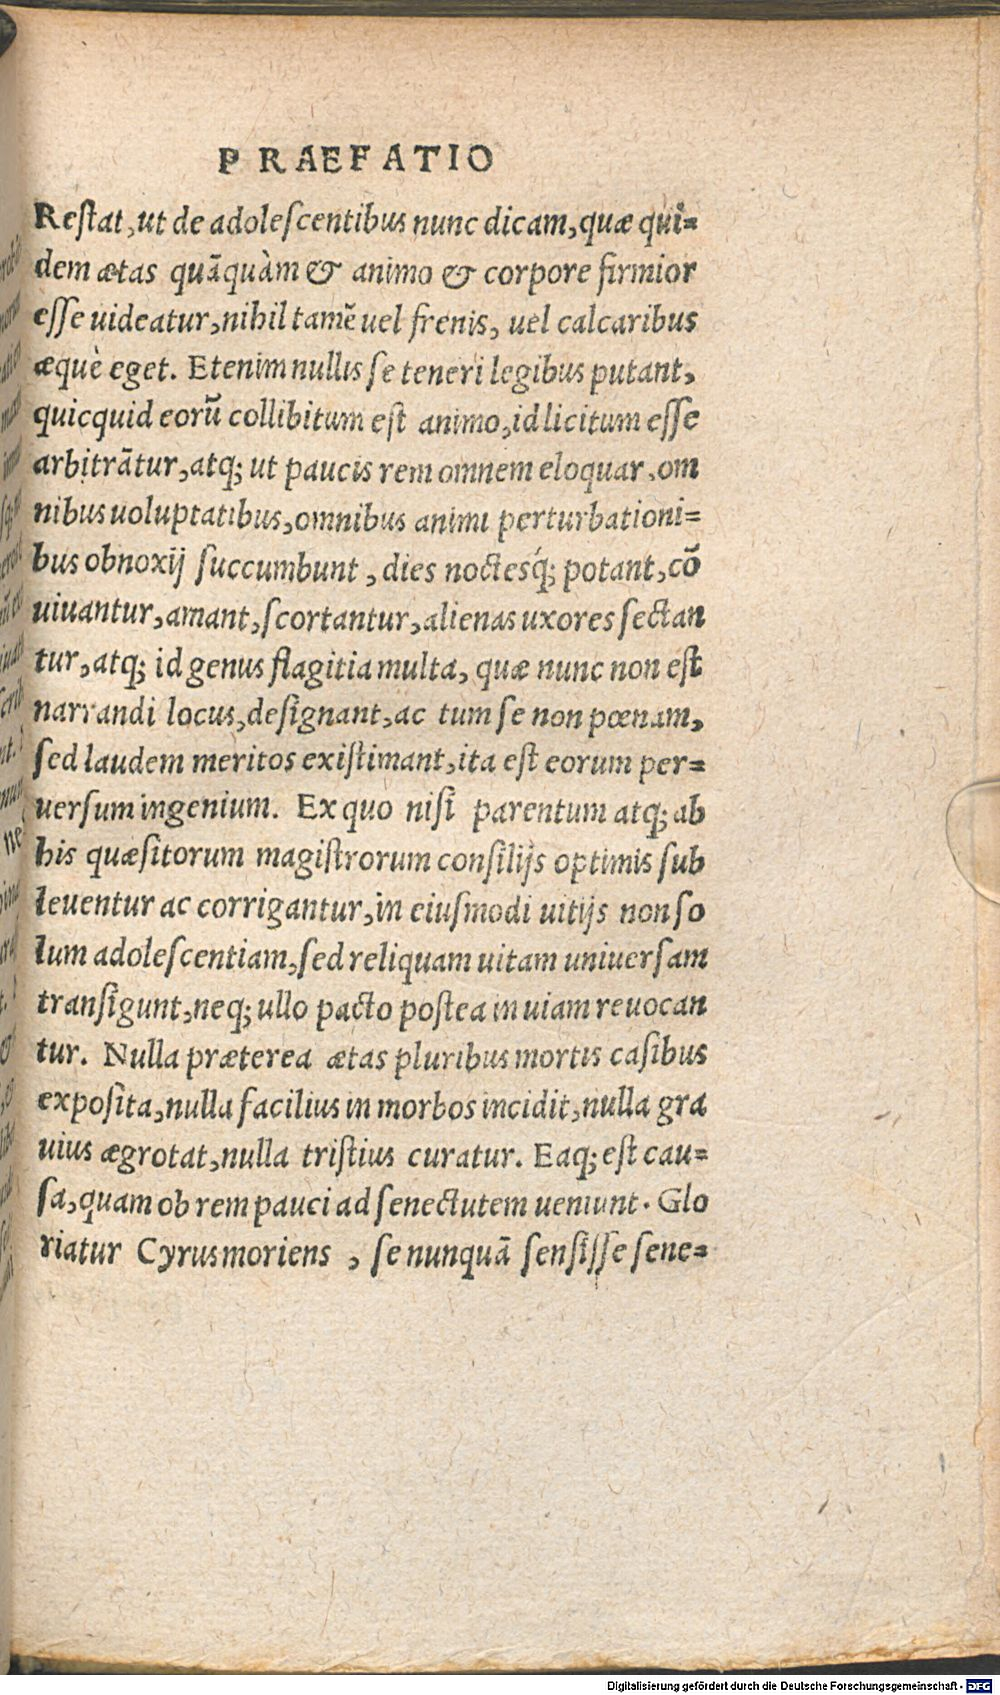 PRAEFATIO
Reſtat, ut de adoleſcentibus nunc dicam, quæ qui=
dem ætas quāquàm & animo & corpore firmior
eſſe uideatur, nihil tamē uel frenis, uel calcaribus
æquè eget. Etenim nullis ſe teneri legibus putant,
quicquid eorū collibitum eſt animo, id licitum eſſe
arbitrātur, atq; ut paucis rem omnem eloquar, om
nibus uoluptatibus, omnibus animi perturbationi=
bus obnoxij ſuccumbunt, dies noctesq́; potant, cō
uiuantur, amant, ſcortantur, alienas uxores ſectan
tur, atq; id genus flagitia multa, quæ nunc non eſt
narrandi locus, deſignant, ac tum ſe non pœnam,
ſed laudem meritos exiſtimant, ita eſt eorum per=
uerſum ingenium. Ex quo niſi parentum atq; ab
his quæſitorum magiſtrorum conſilijs optimis ſub
leuentur ac corrigantur, in eiuſmodi uitijs non ſo
lum adoleſcentiam, ſed reliquam uitam uniuerſam
tranſigunt, neq; ullo pacto poſtea in uiam reuocan
tur. Nulla præterea ætas pluribus mortis caſibus
expoſita, nulla facilius in morbos incidit, nulla gra
uius ægrotat, nulla triſtius curatur. Eaq; eſt cau=
ſa, quam ob rem pauci ad ſenectutem ueniunt. Glo
riatur Cyrus moriens, ſe nunquā ſenſiſſe ſene=
Digitalisierung gefördert durch die Deutsche Forschungsgemeinschaft - DFG